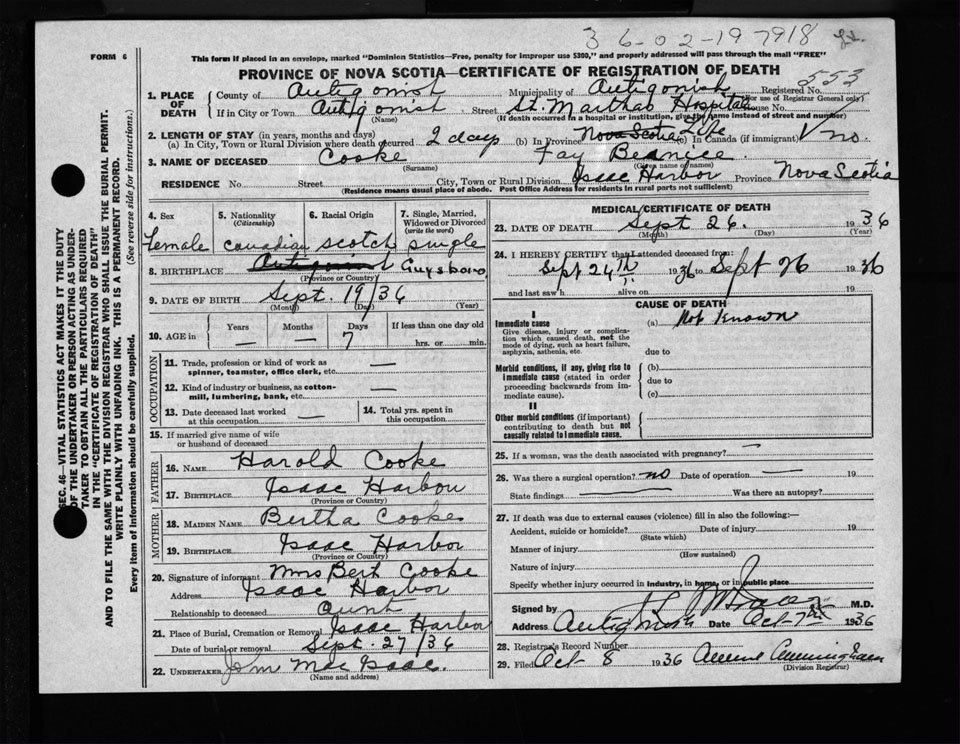 36-02-197918
FORM 6
This form if placed in an envelope, marked "Dominion Statistics—Free, penalty for improper use $300," and properly addressed will pass through the mail "FREE"
PROVINCE OF NOVA SCOTIA—CERTIFICATE OF REGISTRATION OF DEATH
553
1. PLACE OF DEATH
County of Antigonish Municipality of Antigonish Registered No.
(For use of Registrar General only)
If in City or Town Antigonish Street St. Marthas Hospital House No.
(Name) (If death occurred in a hospital or institution, give the name instead of street and number)
2. LENGTH OF STAY (in years, months and days)
(a) In City, Town or Rural Division where death occurred 2 days (b) In Province Nova Scotia Life (c) In Canada (if immigrant) no.
3. NAME OF DECEASED Cooke Fay Bernice
(Surname) (Given name or names)
RESIDENCE No. Street City, Town or Rural Division Isaac Harbor Province Nova Scotia
(Residence means usual place of abode. Post Office Address for residents in rural parts not sufficient)
4. Sex
female
5. Nationality (Citizenship)
Canadian
6. Racial Origin
Scotch
7. Single, Married, Widowed or Divorced (write the word)
single
8. BIRTHPLACE Antigonish Guysboro
(Province or Country)
9. DATE OF BIRTH Sept. 19/36
(Month) (Day) (Year)
10. AGE in
Years Months Days If less than one day old
— — 7 hrs. or min.
OCCUPATION
11. Trade, profession or kind of work as spinner, teamster, office clerk, etc. —
12. Kind of industry or business, as cotton-mill, lumbering, bank, etc. —
13. Date deceased last worked at this occupation —
14. Total yrs. spent in this occupation
15. If married give name of wife or husband of deceased
FATHER
16. NAME Harold Cooke
17. BIRTHPLACE Isaac Harbor
(Province or Country)
MOTHER
18. MAIDEN NAME Bertha Cooke
19. BIRTHPLACE Isaac Harbor
(Province or Country)
20. Signature of informant Mrs Bert Cooke
Address Isaac Harbor
Relationship to deceased Aunt
21. Place of Burial, Cremation or Removal Isaac Harbor
Date of burial or removal Sept. 27/36
22. UNDERTAKER John Mac Isaac
(Name and address)
MEDICAL CERTIFICATE OF DEATH
23. DATE OF DEATH Sept 26. 1936
(Month) (Day) (Year)
24. I HEREBY CERTIFY that I attended deceased from:
Sept 24th 1936 to Sept 26 1936
and last saw h alive on 19
CAUSE OF DEATH
I
Immediate cause
Give disease, injury or complication which caused death, not the mode of dying, such as heart failure, asphyxia, asthenia, etc.
(a) Not Known
due to
Morbid conditions, if any, giving rise to immediate cause (stated in order proceeding backwards from immediate cause).
(b)
due to
(c)
II
Other morbid conditions (if important) contributing to death but not causally related to immediate cause.
25. If a woman, was the death associated with pregnancy? —
26. Was there a surgical operation? no Date of operation — 19
State findings Was there an autopsy?
27. If death was due to external causes (violence) fill in also the following:—
Accident, suicide or homicide? Date of injury 19
(State which)
Manner of injury
(How sustained)
Nature of injury
Specify whether injury occurred in industry, in home, or in public place
Signed by M.D.
Address Antigonish Date Oct 7th 1936
28. Registrar's Record Number
29. Filed Oct 8 1936 Cunningham
(Division Registrar)
SEC. 46—VITAL STATISTICS ACT MAKES IT THE DUTY
OF THE UNDERTAKER OR PERSON ACTING AS UNDER-
TAKER TO OBTAIN ALL THE PARTICULARS REQUIRED
IN THE "CERTIFICATE OF REGISTRATION OF DEATH"
AND TO FILE THE SAME WITH THE DIVISION REGISTRAR WHO SHALL ISSUE THE BURIAL PERMIT.
WRITE PLAINLY WITH UNFADING INK. THIS IS A PERMANENT RECORD.
Every item of Information should be carefully supplied. (See reverse side for instructions.)